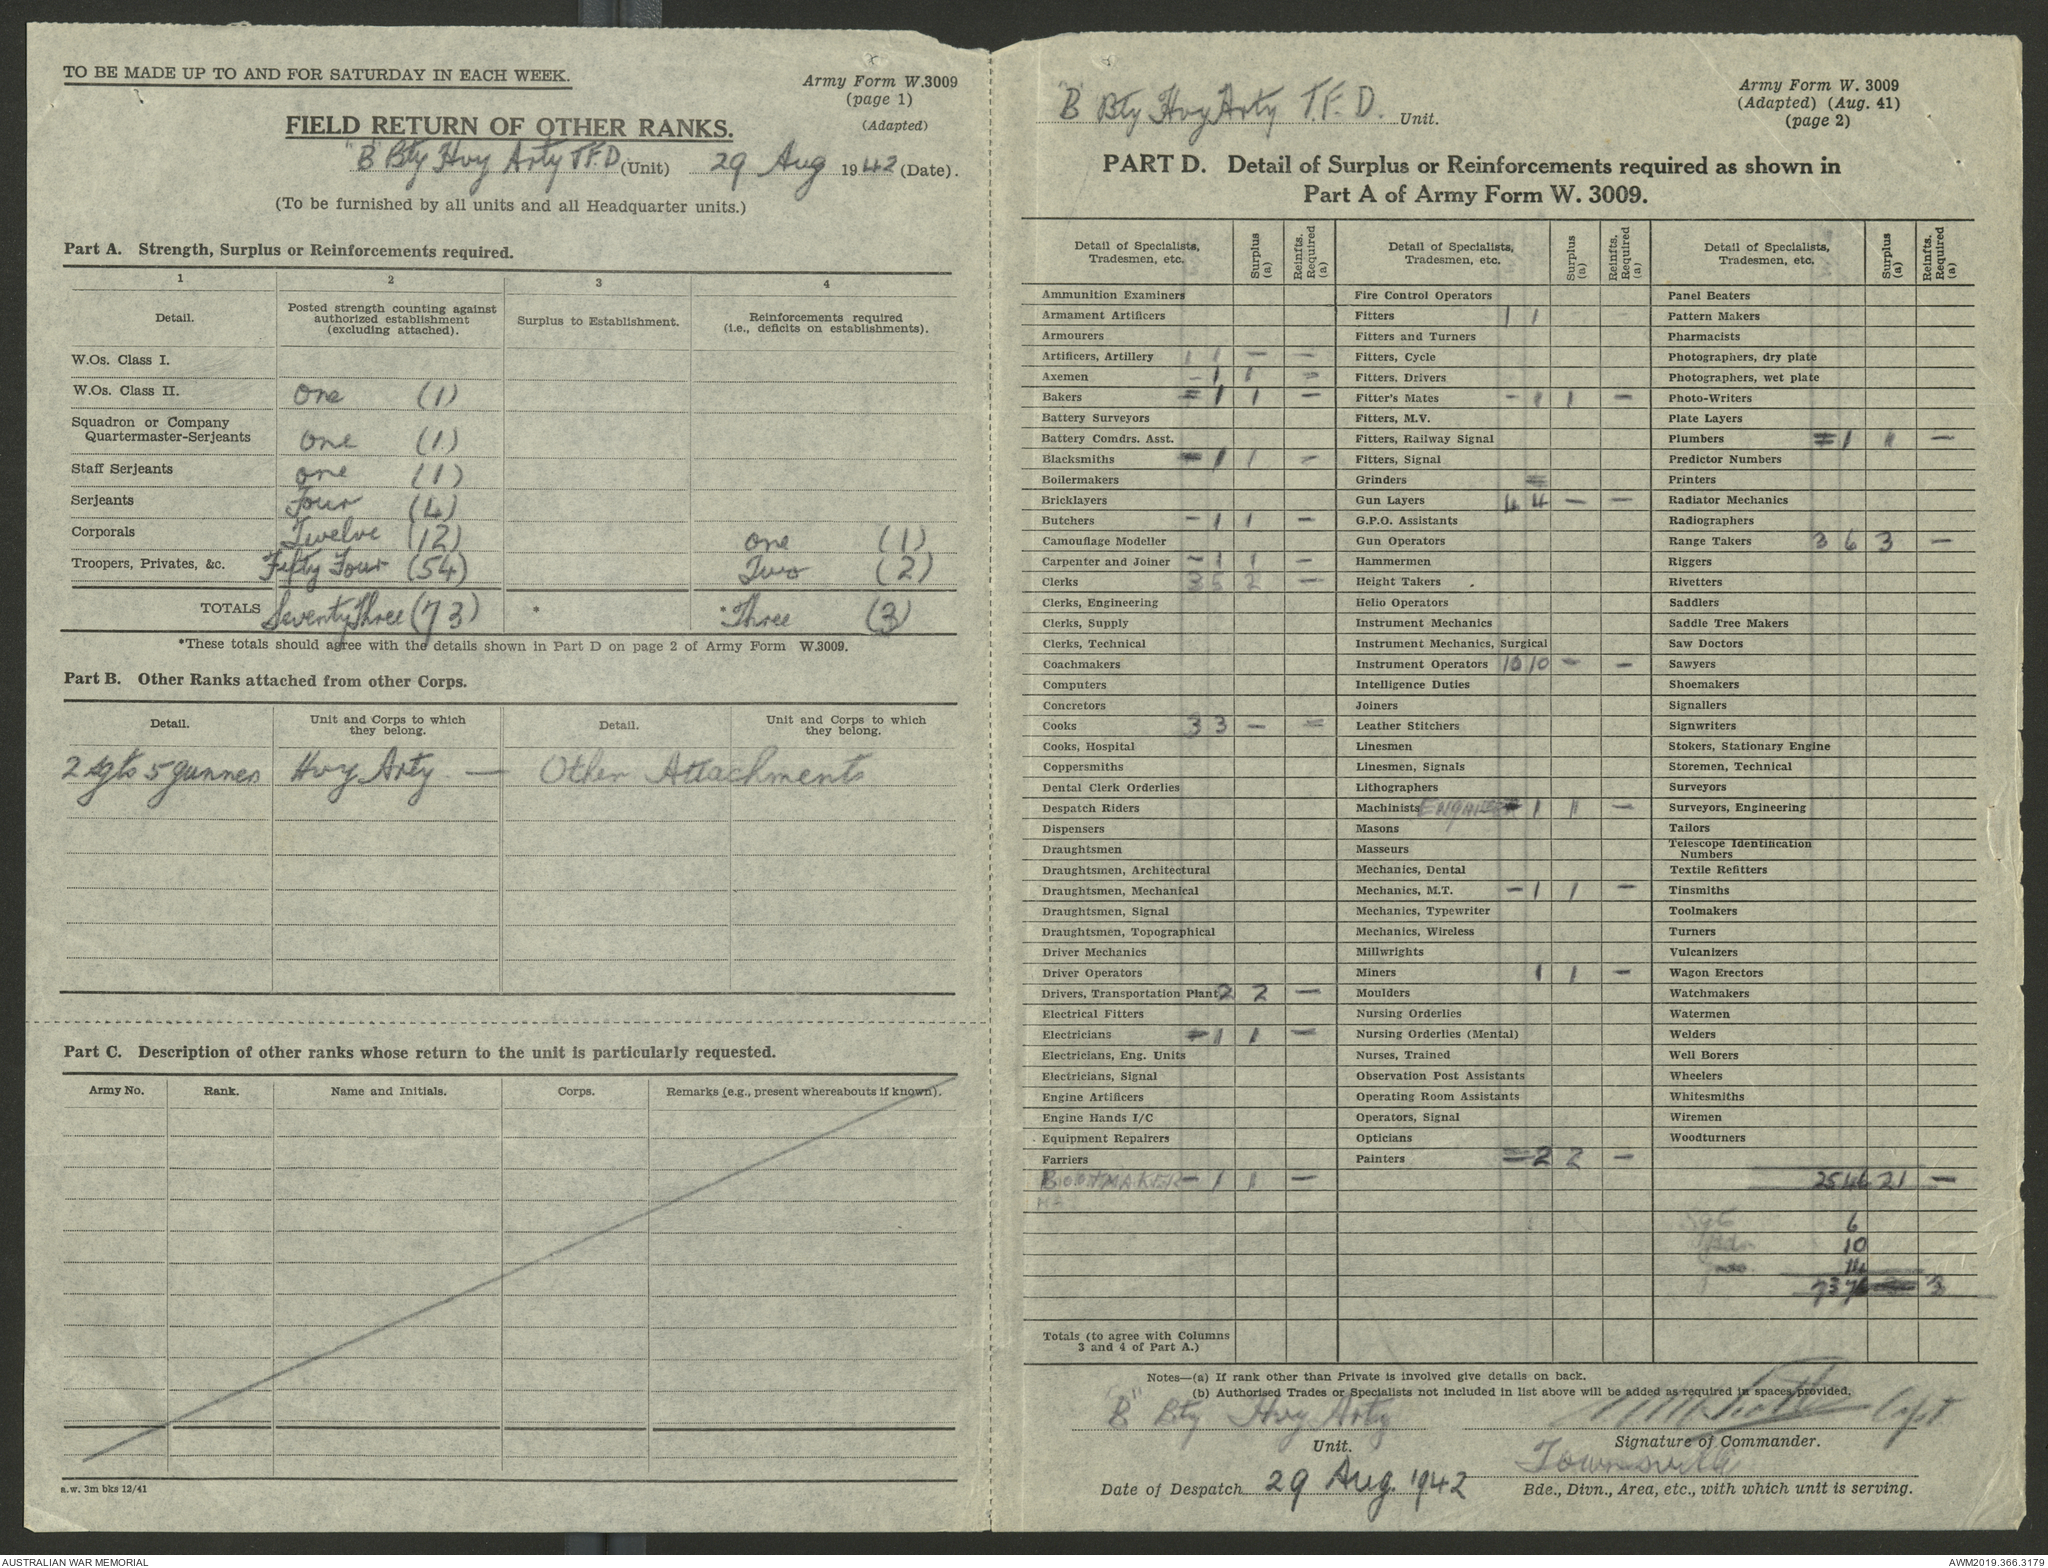 TO BE MADE UP TO AND FOR SATURDAY IN EACH WEEK.
Army Form W.3009
(page 1)
(Adapted)
FIELD RETURN OF OTHER RANKS.
"B" Bty Hvy Arty T.F.D (Unit) 29 Aug 1942 (Date).
(To be furnished by all units and all Headquarter units.)
Part A. Strength, Surplus or Reinforcements required.
1 2 3 4
Detail. Posted strength counting against authorized establishment (excluding attached). Surplus to Establishment. Reinforcements required (i.e., deficits on establishments).
W.Os. Class I.
W.Os. Class II. One (1)
Squadron or Company
Quartermaster-Serjeants One (1)
Staff Serjeants One (1)
Serjeants Four (4)
Corporals Twelve (12) One (1)
Troopers, Privates, &c. Fifty Four (54) Two (2)
TOTALS Seventy Three (73) * *Three (3)
*These totals should agree with the details shown in Part D on page 2 of Army Form W.3009.
Part B. Other Ranks attached from other Corps.
Detail. Unit and Corps to which they belong. Detail. Unit and Corps to which they belong.
2 sgts 5 gunners Hvy Arty — Other Attachments
Part C. Description of other ranks whose return to the unit is particularly requested.
Army No. Rank. Name and Initials. Corps. Remarks (e.g., present whereabouts if known).
a.w. 3m bks 12/41
"B" Bty Hvy Arty T.F.D. Unit.
Army Form W. 3009
(Adapted) (Aug. 41)
(page 2)
PART D. Detail of Surplus or Reinforcements required as shown in
Part A of Army Form W. 3009.
Detail of Specialists, Tradesmen, etc. Surplus (a) Reinfts. Required (a)
Ammunition Examiners
Armament Artificers
Armourers
Artificers, Artillery 1 1 — —
Axemen — 1 1 —
Bakers — 1 1 —
Battery Surveyors
Battery Comdrs. Asst.
Blacksmiths — 1 1 —
Boilermakers
Bricklayers
Butchers — 1 1 —
Camouflage Modeller
Carpenter and Joiner — 1 1 —
Clerks 3 5 2 —
Clerks, Engineering
Clerks, Supply
Clerks, Technical
Coachmakers
Computers
Concretors
Cooks 3 3 — —
Cooks, Hospital
Coppersmiths
Dental Clerk Orderlies
Despatch Riders
Dispensers
Draughtsmen
Draughtsmen, Architectural
Draughtsmen, Mechanical
Draughtsmen, Signal
Draughtsmen, Topographical
Driver Mechanics
Driver Operators
Drivers, Transportation Plant 2 2 —
Electrical Fitters
Electricians — 1 1 —
Electricians, Eng. Units
Electricians, Signal
Engine Artificers
Engine Hands I/C
Equipment Repairers
Farriers
BOOTMAKER — 1 1 —
Detail of Specialists, Tradesmen, etc. Surplus (a) Reinfts. Required (a)
Fire Control Operators
Fitters 1 1
Fitters and Turners
Fitters, Cycle
Fitters, Drivers
Fitter's Mates — 1 1 —
Fitters, M.V.
Fitters, Railway Signal
Fitters, Signal
Grinders
Gun Layers 4 4 — —
G.P.O. Assistants
Gun Operators
Hammermen
Height Takers
Helio Operators
Instrument Mechanics
Instrument Mechanics, Surgical
Instrument Operators 10 10 — —
Intelligence Duties
Joiners
Leather Stitchers
Linesmen
Linesmen, Signals
Lithographers
Machinists 1 1 —
Masons
Masseurs
Mechanics, Dental
Mechanics, M.T. — 1 1 —
Mechanics, Typewriter
Mechanics, Wireless
Millwrights
Miners 1 1 —
Moulders
Nursing Orderlies
Nursing Orderlies (Mental)
Nurses, Trained
Observation Post Assistants
Operating Room Assistants
Operators, Signal
Opticians
Painters — 2 2 —
Detail of Specialists, Tradesmen, etc. Surplus (a) Reinfts. Required (a)
Panel Beaters
Pattern Makers
Pharmacists
Photographers, dry plate
Photographers, wet plate
Photo-Writers
Plate Layers
Plumbers — 1 1 —
Predictor Numbers
Printers
Radiator Mechanics
Radiographers
Range Takers 3 6 3 —
Riggers
Rivetters
Saddlers
Saddle Tree Makers
Saw Doctors
Sawyers
Shoemakers
Signallers
Signwriters
Stokers, Stationary Engine
Storemen, Technical
Surveyors
Surveyors, Engineering
Tailors
Telescope Identification
Numbers
Textile Refitters
Tinsmiths
Toolmakers
Turners
Vulcanizers
Wagon Erectors
Watchmakers
Watermen
Welders
Well Borers
Wheelers
Whitesmiths
Wiremen
Woodturners
25 46 21 —
Sgt 6
10
14
73 76 3
Totals (to agree with Columns
3 and 4 of Part A.)
Notes—(a) If rank other than Private is involved give details on back.
(b) Authorised Trades or Specialists not included in list above will be added as required in spaces provided.
"B" Bty Hvy Arty
Unit.
Capt
Signature of Commander.
Date of Despatch 29 Aug. 1942
Townsville
Bde., Divn., Area, etc., with which unit is serving.
AUSTRALIAN WAR MEMORIAL
AWM2019.366.3179